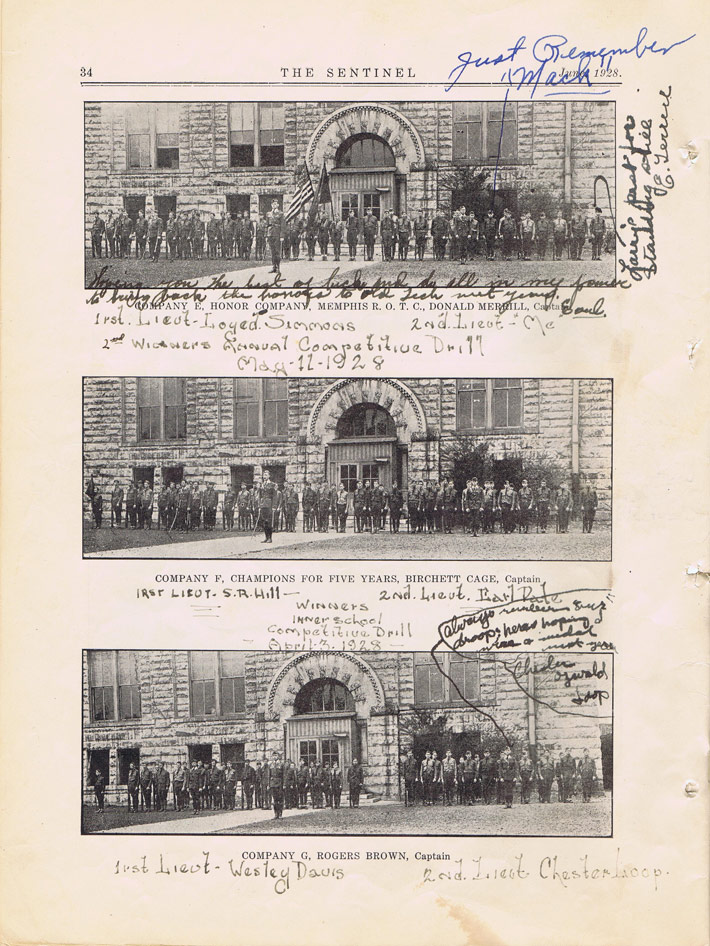 34
THE SENTINEL
June 1928.
Just Remember
"Mack"
Hoping you the best of luck and do all in my power
to bring back the honors to old Tech next year.
Saul
COMPANY E, HONOR COMPANY, MEMPHIS R. O. T. C., DONALD MERRILL, Captain
1rst. Lieut-Loyed. Simmons
2nd. Lieut-Me
2nd Winners Annual Competitive Drill
May-11-1928
COMPANY F, CHAMPIONS FOR FIVE YEARS, BIRCHETT CAGE, Captain
1rst Lieut-S.A. Hill-
2nd. Lieut. Earl Date
Winners
Inner School
Competitive Drill
-April-3-1928-
always
droop. heres hoping
a medal
next year
Chester
Loop
COMPANY G, ROGERS BROWN, Captain
1rst Lieut-Wesley Davis
2nd. Lieut. Chester Loop.